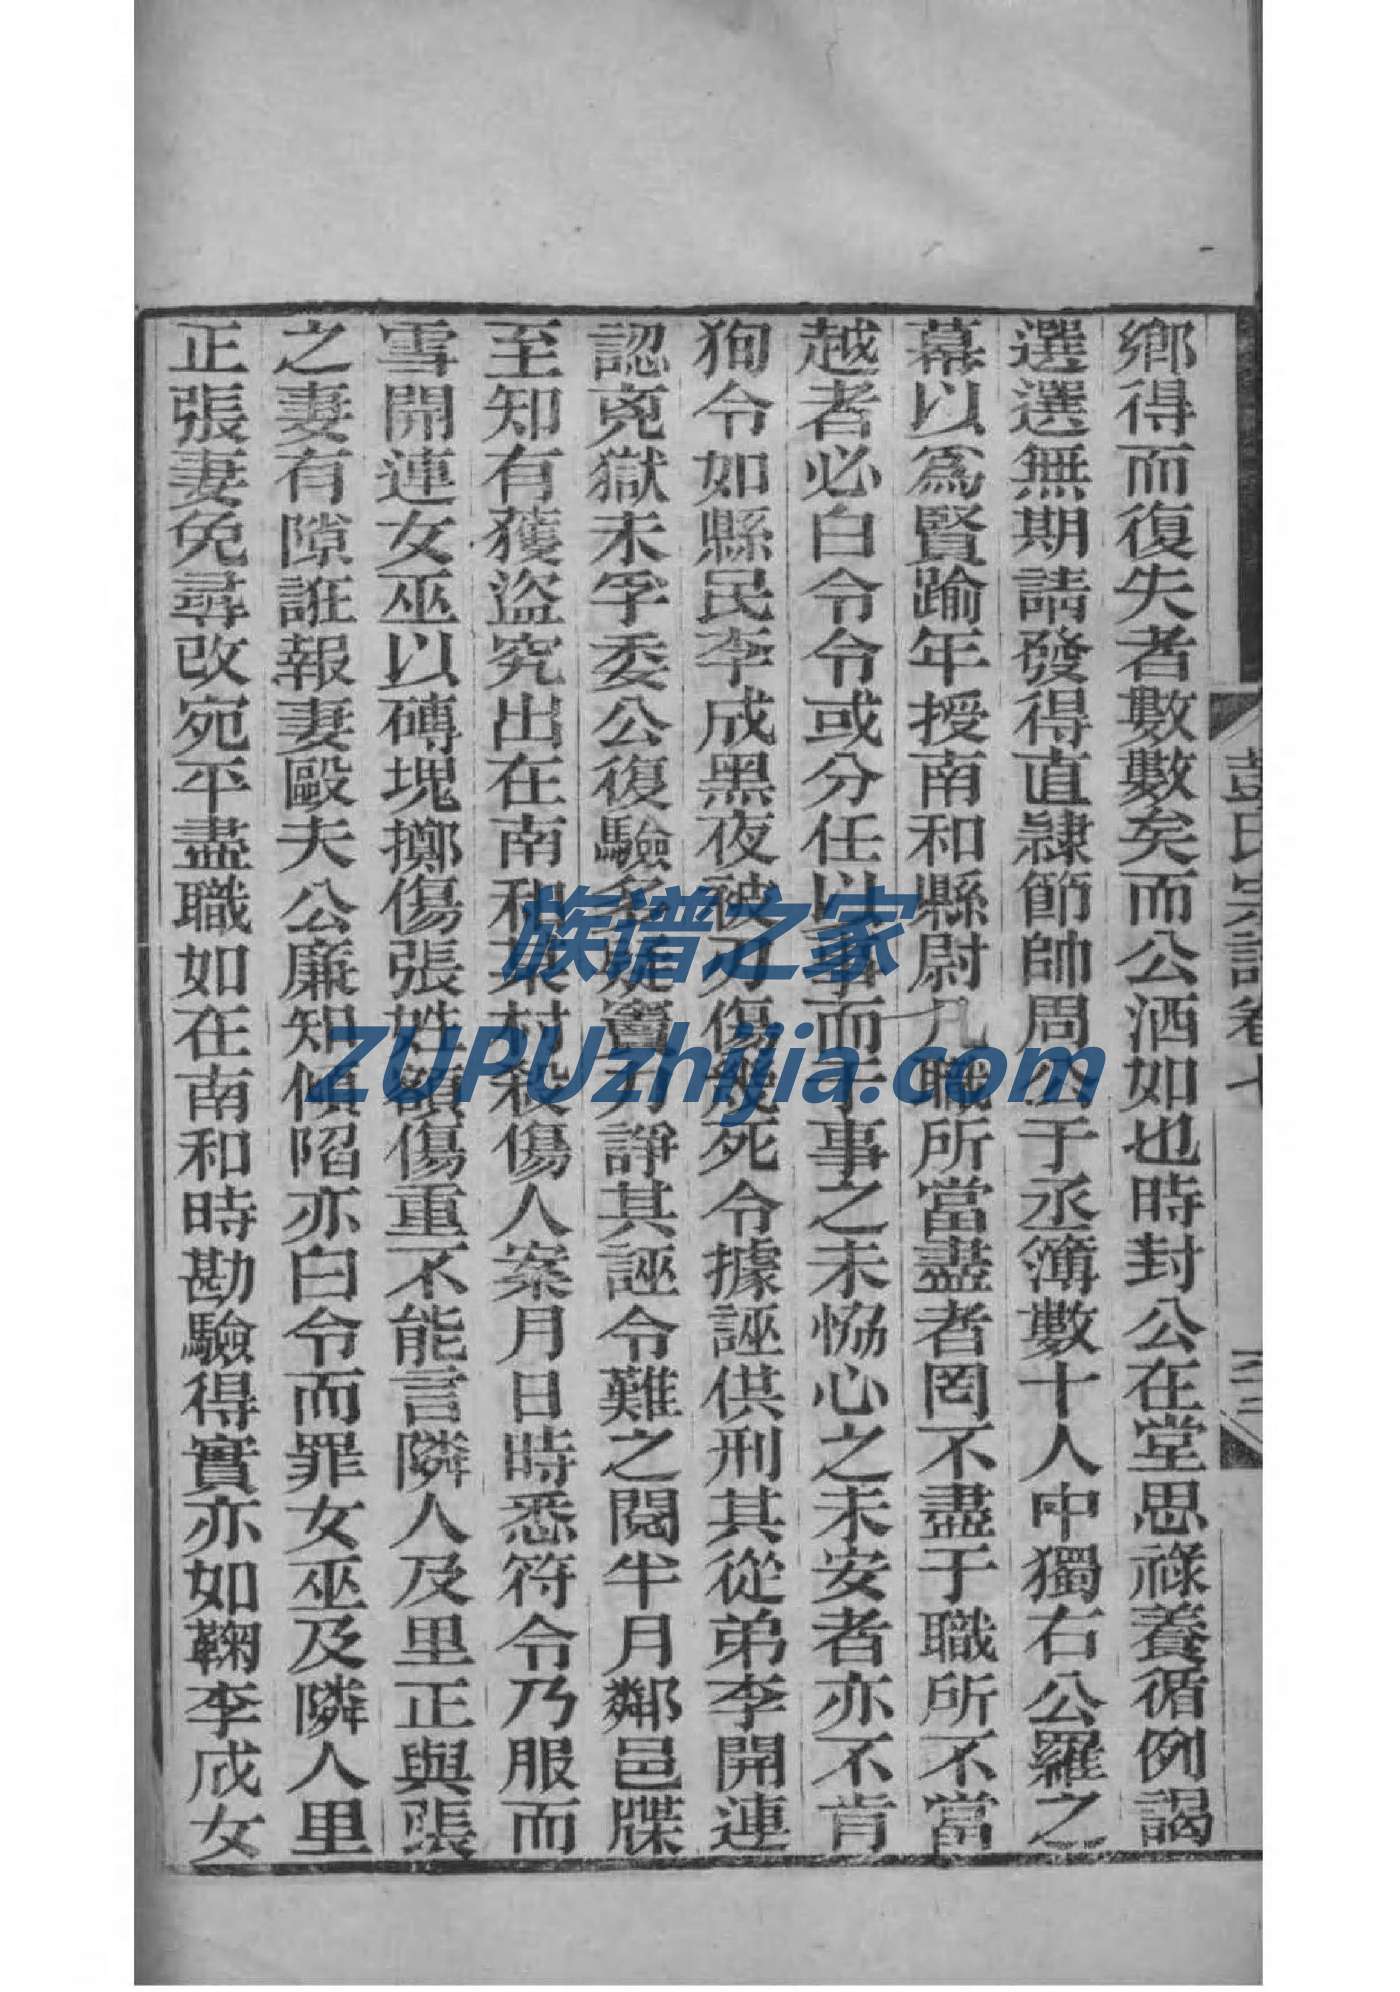 鄉得而復失者數數矣而公洒如也時封公在堂思祿養循例謁
選選無期請發得直隷節帥周公于丞簿數十人中獨右公羅之
幕以爲賢踰年授南和縣尉凡職所當盡者罔不盡于職所不當
越者必白令令或分任以事而于事之未恊心之未安者亦不肯
狥令如縣民李成黑夜被刃傷幾死令據誣供刑其從弟李開連
認寃獄未孚委公復驗多疑竇力諍其誣令難之閱半月鄰邑牒
至知有獲盜究出在南和某村殺傷人案月日時悉符令乃服而
雪開連女巫以磚塊擲傷張姓額傷重不能言隣人及里正與張
之妻有隙誑報妻毆夫公廉知傾陷亦白令而罪女巫及隣人里
正張妻免尋改宛平盡職如在南和時勘驗得實亦如鞫李成女
彭氏宗譜卷七
族谱之家
ZUPUzhijia.com